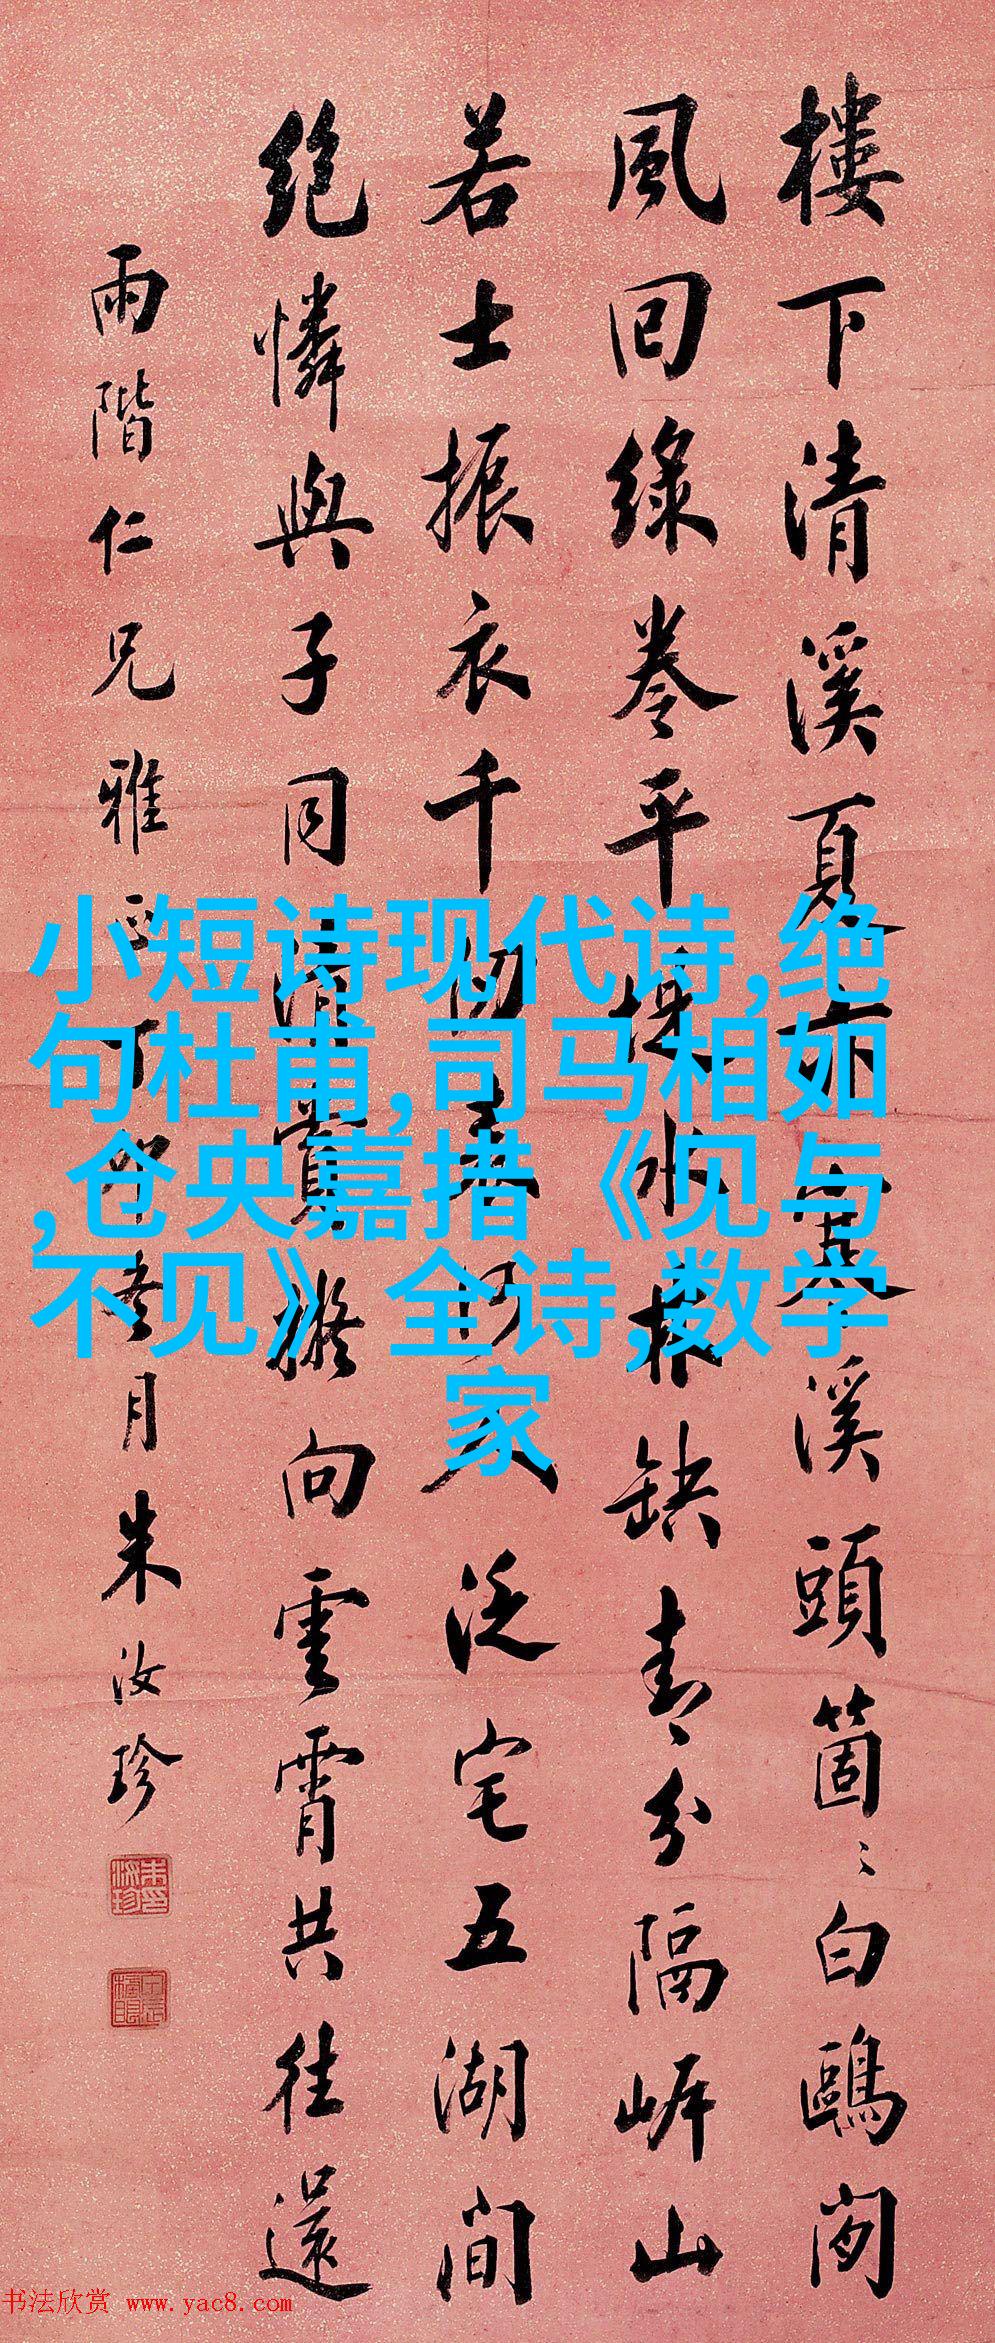 樓下清溪夏亦寒溪頭箇〻白鷗閑
風回綠卷平堤水林缺青分隔岸山
若士振衣千仞表何人泛宅五湖間
絕憐與子同清賞擬向雲霄共往還
雨階仁兄雅正丁卯春月朱汝珍
小短诗现代诗,绝
句杜甫,司马相如
,仓央嘉措《见与
不见》全诗,数学
家
书法欣赏 www.yac8.com